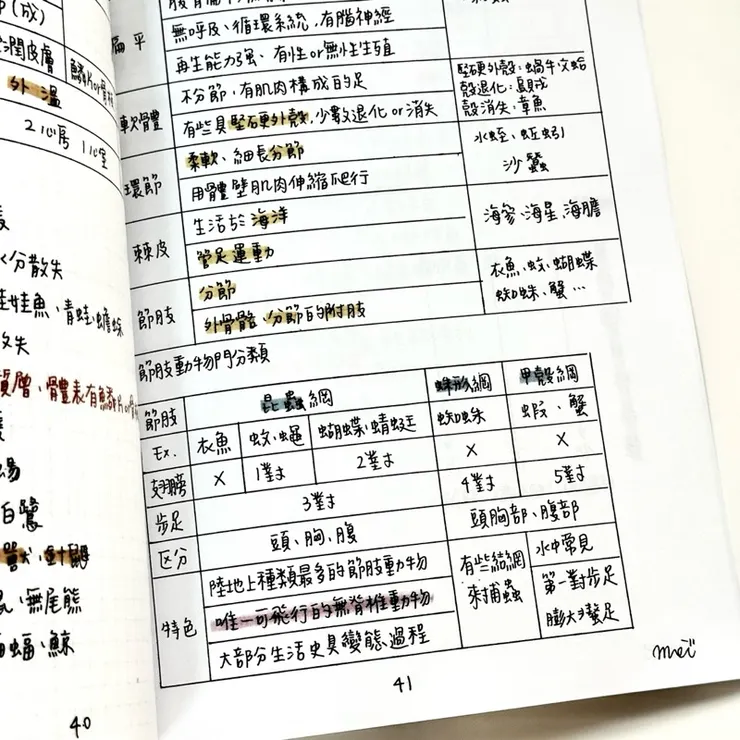 (成)
潤皮膚
外溫
2心房 1心室
水分散失
娃娃魚、青蛙、蟾蜍
散失
質層、骨豊表有魚鱗
白鷺
獸、針鼴
鼠、無尾熊
蝙蝠、鯨
40
扁平
無呼及、循環系統,有腦神經
再生能力強、有性or無性生殖
軟骨體
不分節,有肌肉構成的足
有些具堅硬外殼,少數退化or消失
堅硬外殼:蝸牛文蛤
殼退化:烏賊
殼消失:章魚
環節
柔軟、細長分節
用骨體壁肌肉伸縮爬行
水蛭、蚯蚓
沙蠶
棘皮
生活於海洋
管足運動
海參、海星、海膽
節肢
分節
外骨骼、分節的附肢
衣魚、蚊、蝴蝶
蜘蛛、蟹…
節肢動物門分類
節肢 昆蟲綱 蛛形綱 甲殼綱
Ex. 衣魚 蚊、蠅 蝴蝶、蜻蜓 蜘蛛 蝦、蟹
翅膀 X 1對 2對 X X
步足 3對 4對 5對
區分 頭、胸、腹 頭胸部、腹部
特色
陸地上種類最多的節肢動物
唯一可飛行的無脊椎動物
大部分生活史具變態過程
有些結網
來捕蟲
水中常見
第一對步足
膨大為螯足
mei
41